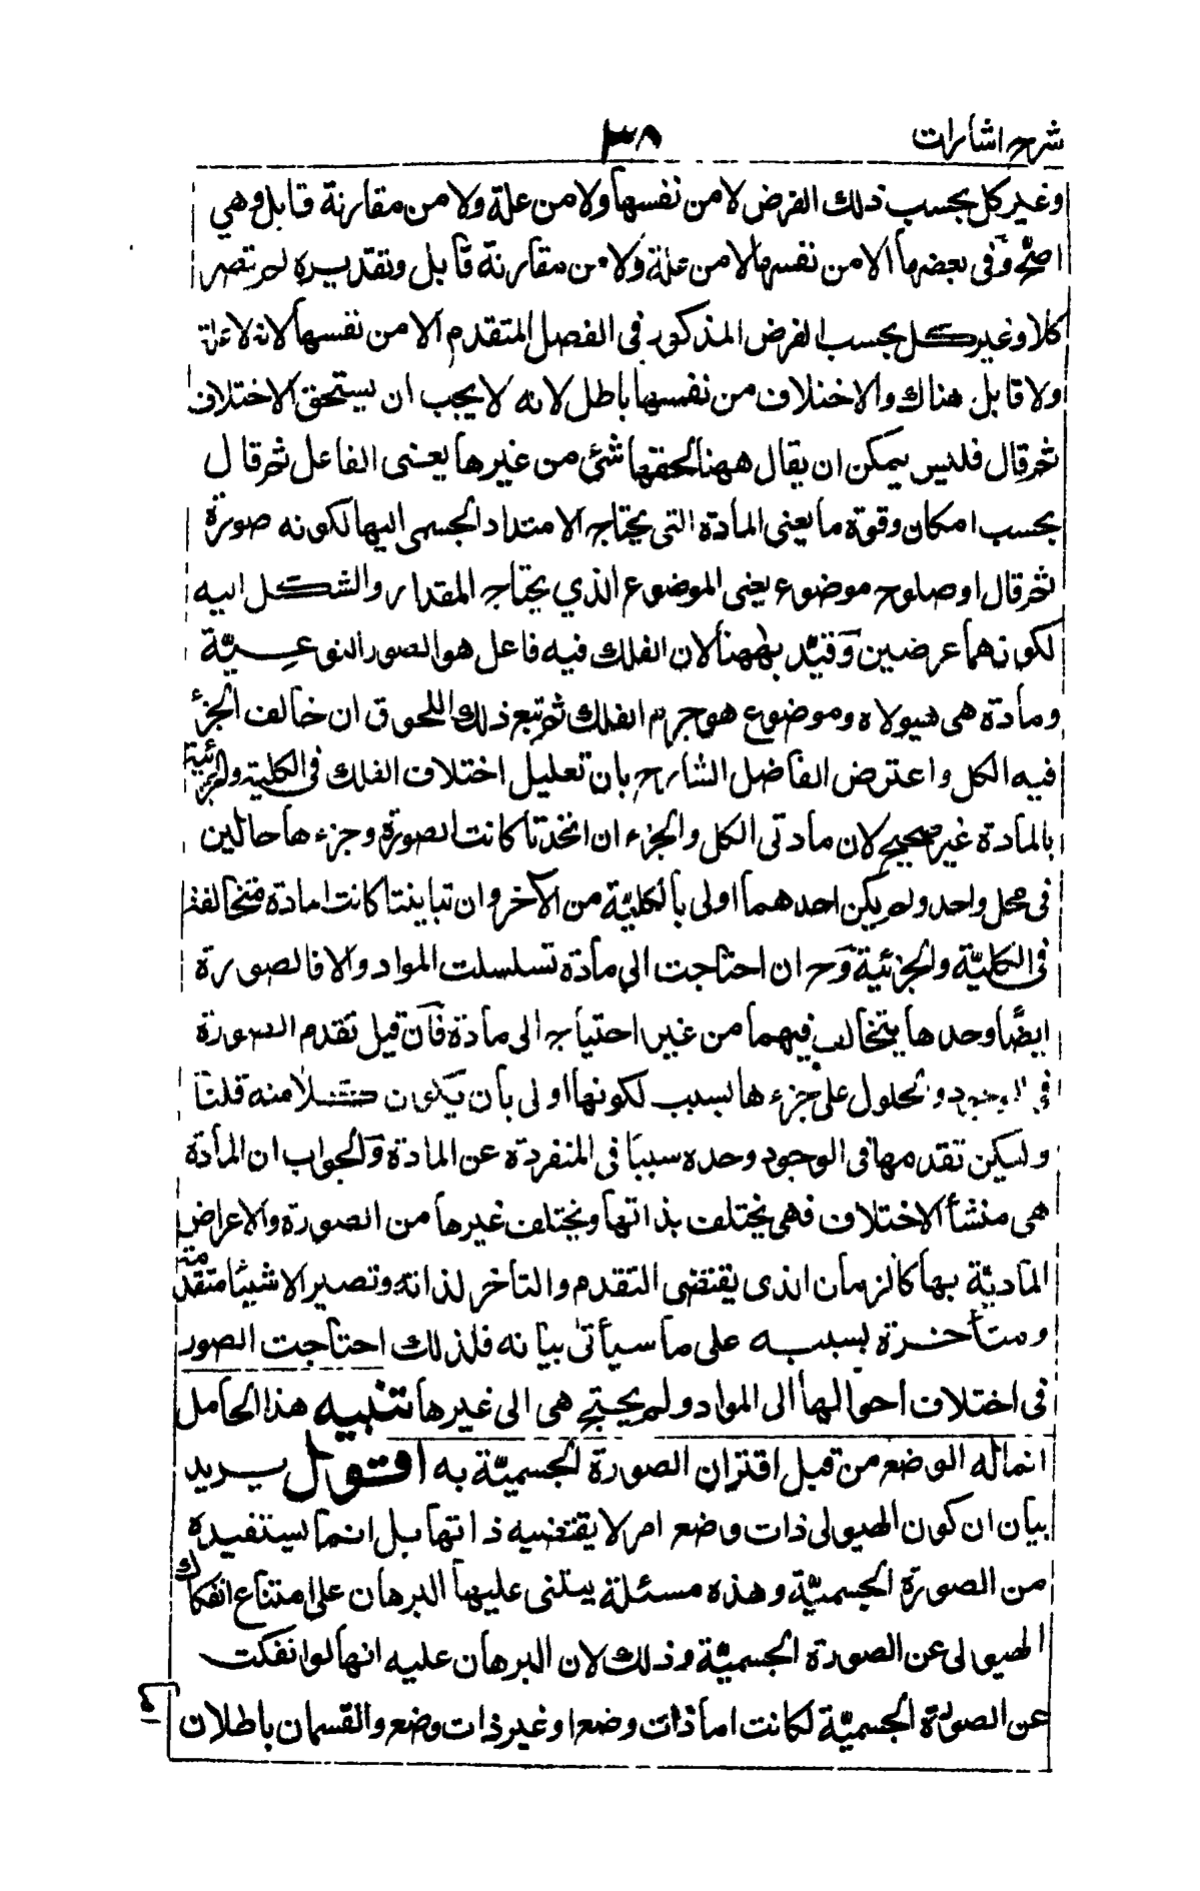 شرح اشارات
٣٨
وغير كل بحسب ذلك الفرض لا من نفسها ولا من علة ولا من مقارنة قابل وهي
اصحّ وَفى بعضها الا من نفسها لا من علة ولا من مقارنة قابل وتقديره لم تصر
كلا وغير كل بحسب الفرض المذكور فى الفصل المتقدم الا من نفسها لانه لا علة
ولا قابل هناك والاختلاف من نفسها باطل لانه لا يجب ان يستحق الاختلاف
ثم قال فليس يمكن ان يقال ههنا لحقها شئ من غيرها يعنى الفاعل ثم قال
بحسب امكان وقوة ما يعنى المادة التى يحتاج الامتداد الجسمى اليها لكونه صورة
ثم قال او صلوح موضوع يعنى الموضوع الذي يحتاج المقدار والشكل اليه
لكونهما عرضين وَقيّد بههنا لان الفلك فيه فاعل هو الصور النوعيّة
ومادة هى هيولاه وموضوع هو جرم الفلك ثم تبع ذلك اللحوق ان خالف الجزء
فيه الكل واعترض الفاضل الشارح بان تعليل اختلاف الفلك فى الكلية والجزئية
بالمادة غير صحيح لان مادتى الكل والجزء ان اتخدتا كانت الصورة وجزءها حالين
فى محل واحد ولم يكن احدهما اولى بالكليّة من الآخر وان تباينتا كانت المادة متخالفة
فى الكليّة والجزئية وَح ان احتاجت الى مادة تسلسلت المواد والا فالصورة
ايضًا وحدها يتخالف فيهما من غير احتياج الى مادة فَان قيل تقدم الصورة
فى الوجود والحلول على جزءها بسبب لكونها اولى بان يكون منه قلنا
وليكن تقدمها فى الوجود وحده سببًا فى المنفردة عن المادة وَالجواب ان المادة
هى منشأ الاختلاف فهى يختلف بذاتها ويختلف غيرها من الصورة والاعراض
الماديّة بها كالزمان الذى يقتضى التقدم والتأخر لذاته وتصير الاشيئا متقدمة
ومتأخرة بسببه على ما سيأتى بيانه فلذلك احتاجت الصور
فى اختلاف احوالها الى المواد ولم يحتج هى الى غيرها تنبيه هذا الحامل
انما له الوضع من قبل اقتران الصورة الجسميّة به اقول يريد
بيان ان كون الهيولى ذات وضع امر لا يقتضيه ذاتها بل انما يستفيده
من الصورة الجسميّة وهذه مسئلة يبتنى عليها البرهان على امتناع انفكاك
الهيولى عن الصورة الجسميّة وذلك لان البرهان عليه انها لو انفكت
عن الصورة الجسميّة لكانت اما ذات وضع او غير ذات وضع والقسمان باطلان